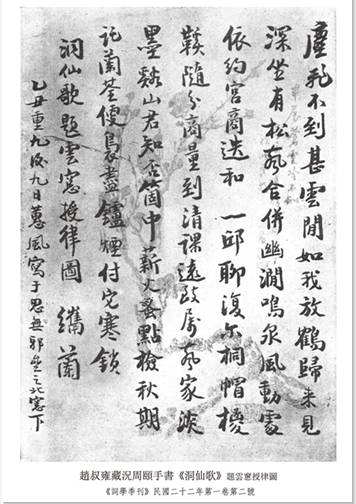 塵飛不到甚雲閒如我放鶴歸来見
深坐有松合併幽澗鳴泉風動處
依約宮商迭和 一邱聊復尒桐帽椶
鞵隨分商量到清課遠致屬家淡
墨谿山君知否箇中薪火蚤點檢秋期
託蘭荃便裊盡鑪煙付它寒鎖
洞仙歌題雲窻授律圖 蘭
乙丑重九後九日蕙風寫于思無邪之北窻下
趙叔雍藏況周頤手書《洞仙歌》題雲窻授律圖
《詞學季刊》民國二十二年第一卷第二號